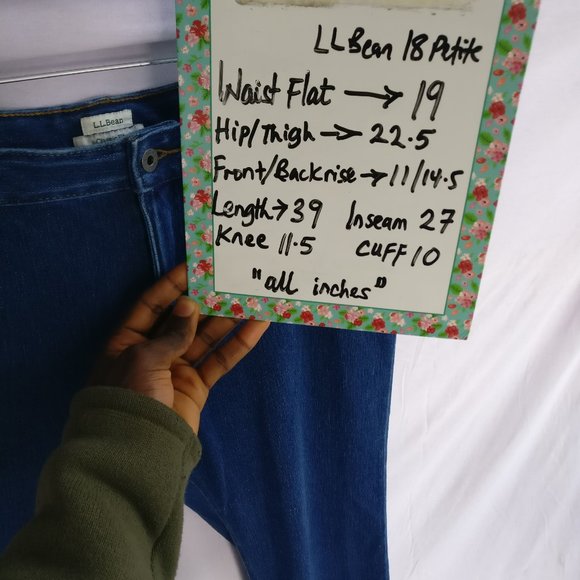 LL Bean 18 Petite
Waist Flat → 19
Hip/Thigh → 22.5
Front/Backrise → 11/14.5
Length → 39 Inseam 27
Knee 11.5 CUFF 10
"all inches"
L.L.Bean